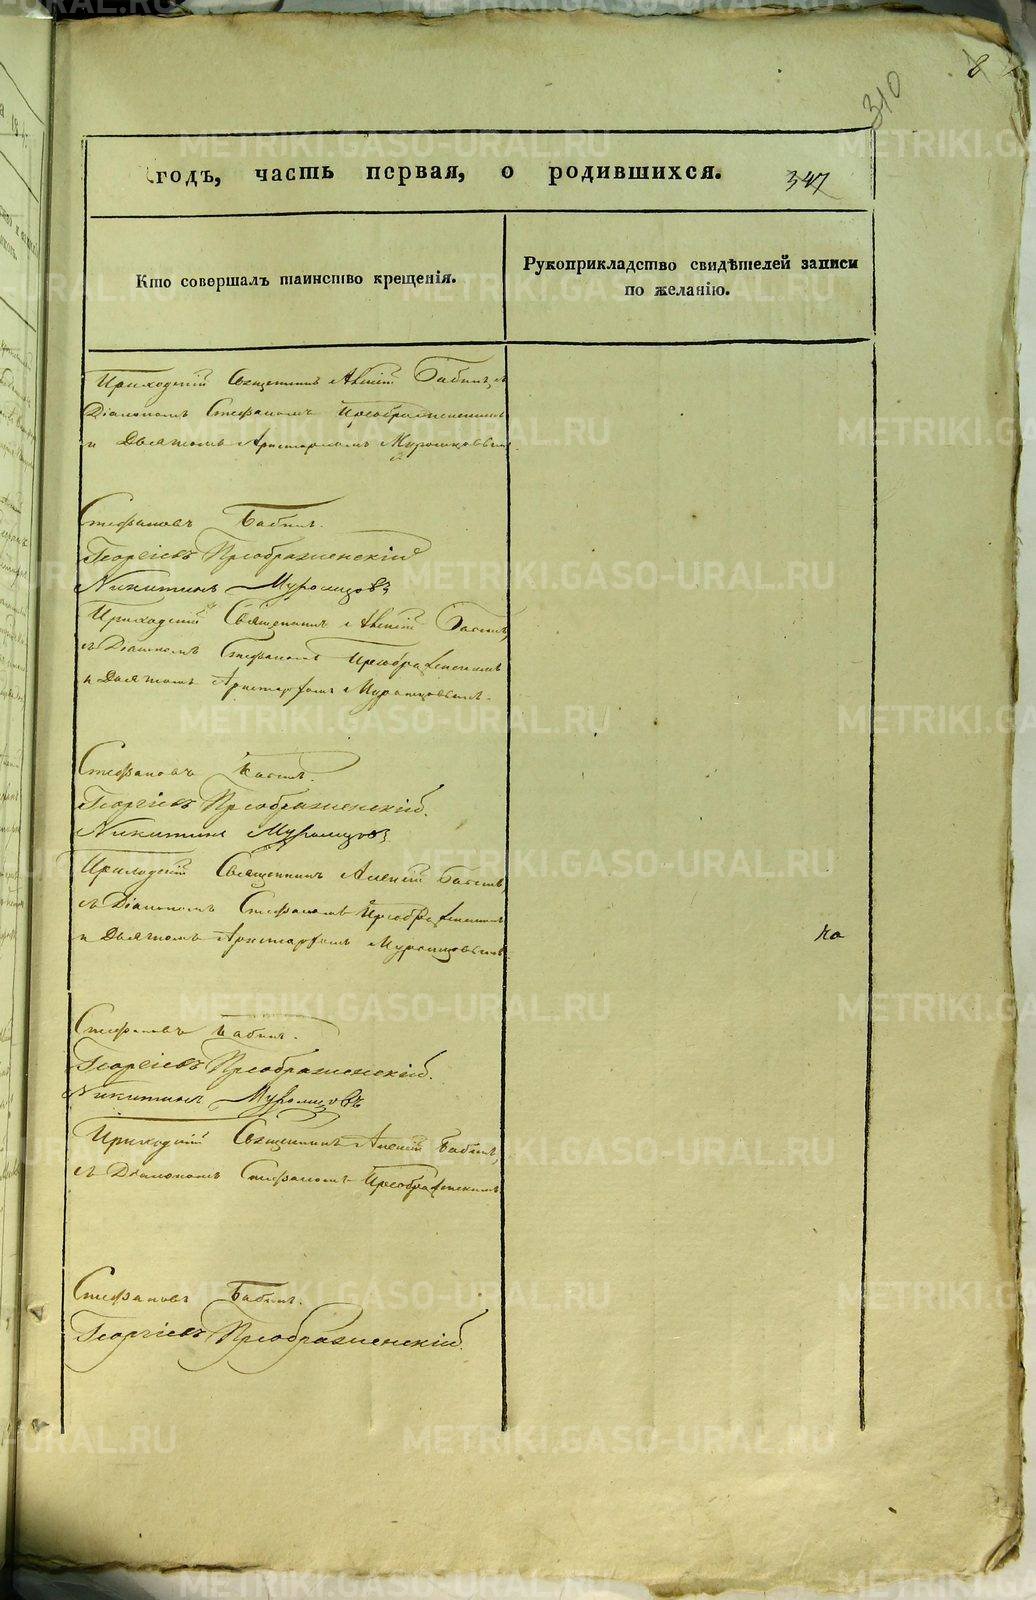 310
годъ, часть первая, о родившихся. 347
Кто совершалъ таинство крещенія.
Рукоприкладство свидѣтелей записи
по желанію.
Приходскій Священникъ Алексій Бабинъ, съ
Діакономъ Стефаномъ Преображенскимъ
и Дьячкомъ Аристархомъ Муромцовымъ
Стефановъ Бабинъ.
Георгіевъ Преображенскій
Никитинъ Муромцовъ
Приходскій Священникъ Алексій Бабинъ,
съ Діакономъ Стефаномъ Преображенскимъ
и Дьячкомъ Аристархомъ Муромцовымъ.
Стефановъ Бабинъ.
Георгіевъ Преображенскій.
Никитинъ Муромцовъ
Приходскій Священникъ Алексій Бабинъ,
съ Діакономъ Стефаномъ Преображенскимъ
и Дьячкомъ Аристархомъ Муромцовымъ
по
Стефановъ Бабинъ.
Георгіевъ Преображенскій.
Никитинъ Муромцовъ
Приходскій Священникъ Алексій Бабинъ,
съ Діакономъ Стефаномъ Преображенскимъ
Стефановъ Бабинъ.
Георгіевъ Преображенскій.
METRIKI.GASO-URAL.RU